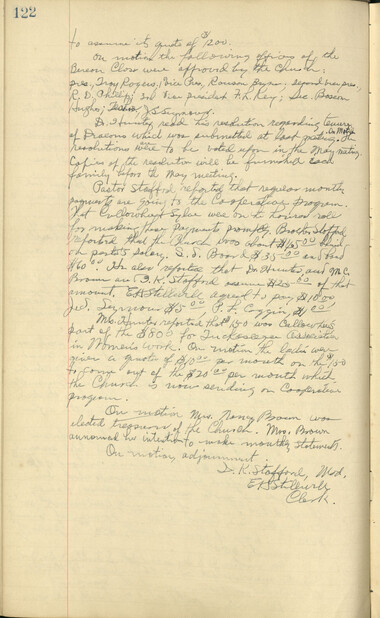 122
to assume its quota of $1200.
On motion the following officers of the
Berean Class were approved by the Church:
pres., Troy Rogers, Vice Pres, Ransom Bryan; second vice pres,
R. D. ; 3rd Vice president F. L. Key; Sec. Boscom
Hughes; Teacher J. S. Seymour.
Dr. Hunter read his resolution regarding tenure
of Deacons which was submitted at last meeting. On Motion
resolutions were to be voted upon in the May meeting.
Copies of the resolution will be furnished each
family before the May meeting.
Pastor Stafford reported that regular monthly
payments are going to the Cooperative program.
That Cullowhee & Sylva were on the honor role
for making their payments promptly. Brother Stafford
reported that the Church was about $165.00 behind
on pastor's salary. S. S. Board $35.00 and
$60.00. He also reported that Dr. Hunter, and McC.
Brown and T. K. Stafford assume $25.00 of that
amount. E. H. Stillwell agreed to pay $10.00
J. S. Seymour $5.00, P. F. Coggins,
Mrs. Hunter reported that $150 was Cullowhee's
part of the $800 for Tuckaseegee Association
in Women's work. On motion the ladies were
given a quota of $10.00 per month on the $150
to come out of the $20.00 per month which
the Church is now sending on Cooperative
program.
On motion Mrs. Nancy Brown was
elected treasurer of the Church. Mrs. Brown
announced her intention to make monthly statements.
On motion, adjournment.
T. K. Stafford, Mod.
E H Stillwell
Clerk.